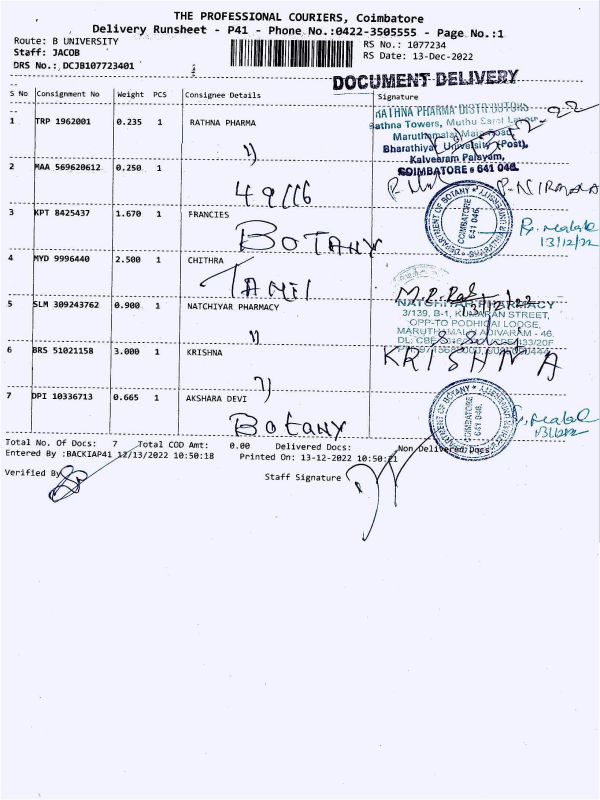 THE PROFESSIONAL COURIERS, Coimbatore
Delivery Runsheet - P41 - Phone No.:0422-3505555 - Page No.:1
Route: B UNIVERSITY
RS No.: 1077234
Staff: JACOB
RS Date: 13-Dec-2022
DRS No.: DCJB107723401
DOCUMENT DELIVERY
S No Consignment No Weight PCS Consignee Details Signature
1 TRP 1962001 0.235 1 RATHNA PHARMA
RATHNA PHARMA DISTRIBUTORS
Rathna Towers, Muthu
Maruthamalai Main Road
Bharathiyar University (Post),
Kalveeram Palayam,
COIMBATORE - 641 046.
2 MAA 569620612 0.250 1
49116
P. NIRMALA
3 KPT 8425437 1.670 1 FRANCIES
BOTANY
DEPARTMENT OF BOTANY
COIMBATORE
641 046.
13/12/22
4 MYD 9996440 2.500 1 CHITHRA
TAMIL
5 SLM 309243762 0.900 1 NATCHIYAR PHARMACY
NATCHIYAR PHARMACY
3/139, B-1, KUMARAN STREET,
OPP-TO PODHIGAI LODGE,
MARUTHAMALAI ADIVARAM - 46.
6 BRS 51021158 3.000 1 KRISHNA
KRISHNA
7 DPI 10336713 0.665 1 AKSHARA DEVI
BOTANY
DEPARTMENT OF BOTANY
COIMBATORE
641 046.
Total No. Of Docs: 7 Total COD Amt: 0.00 Delivered Docs: Non Delivered Docs:
Entered By :BACKIAP41 12/13/2022 10:50:18 Printed On: 13-12-2022 10:50:21
Verified By
Staff Signature